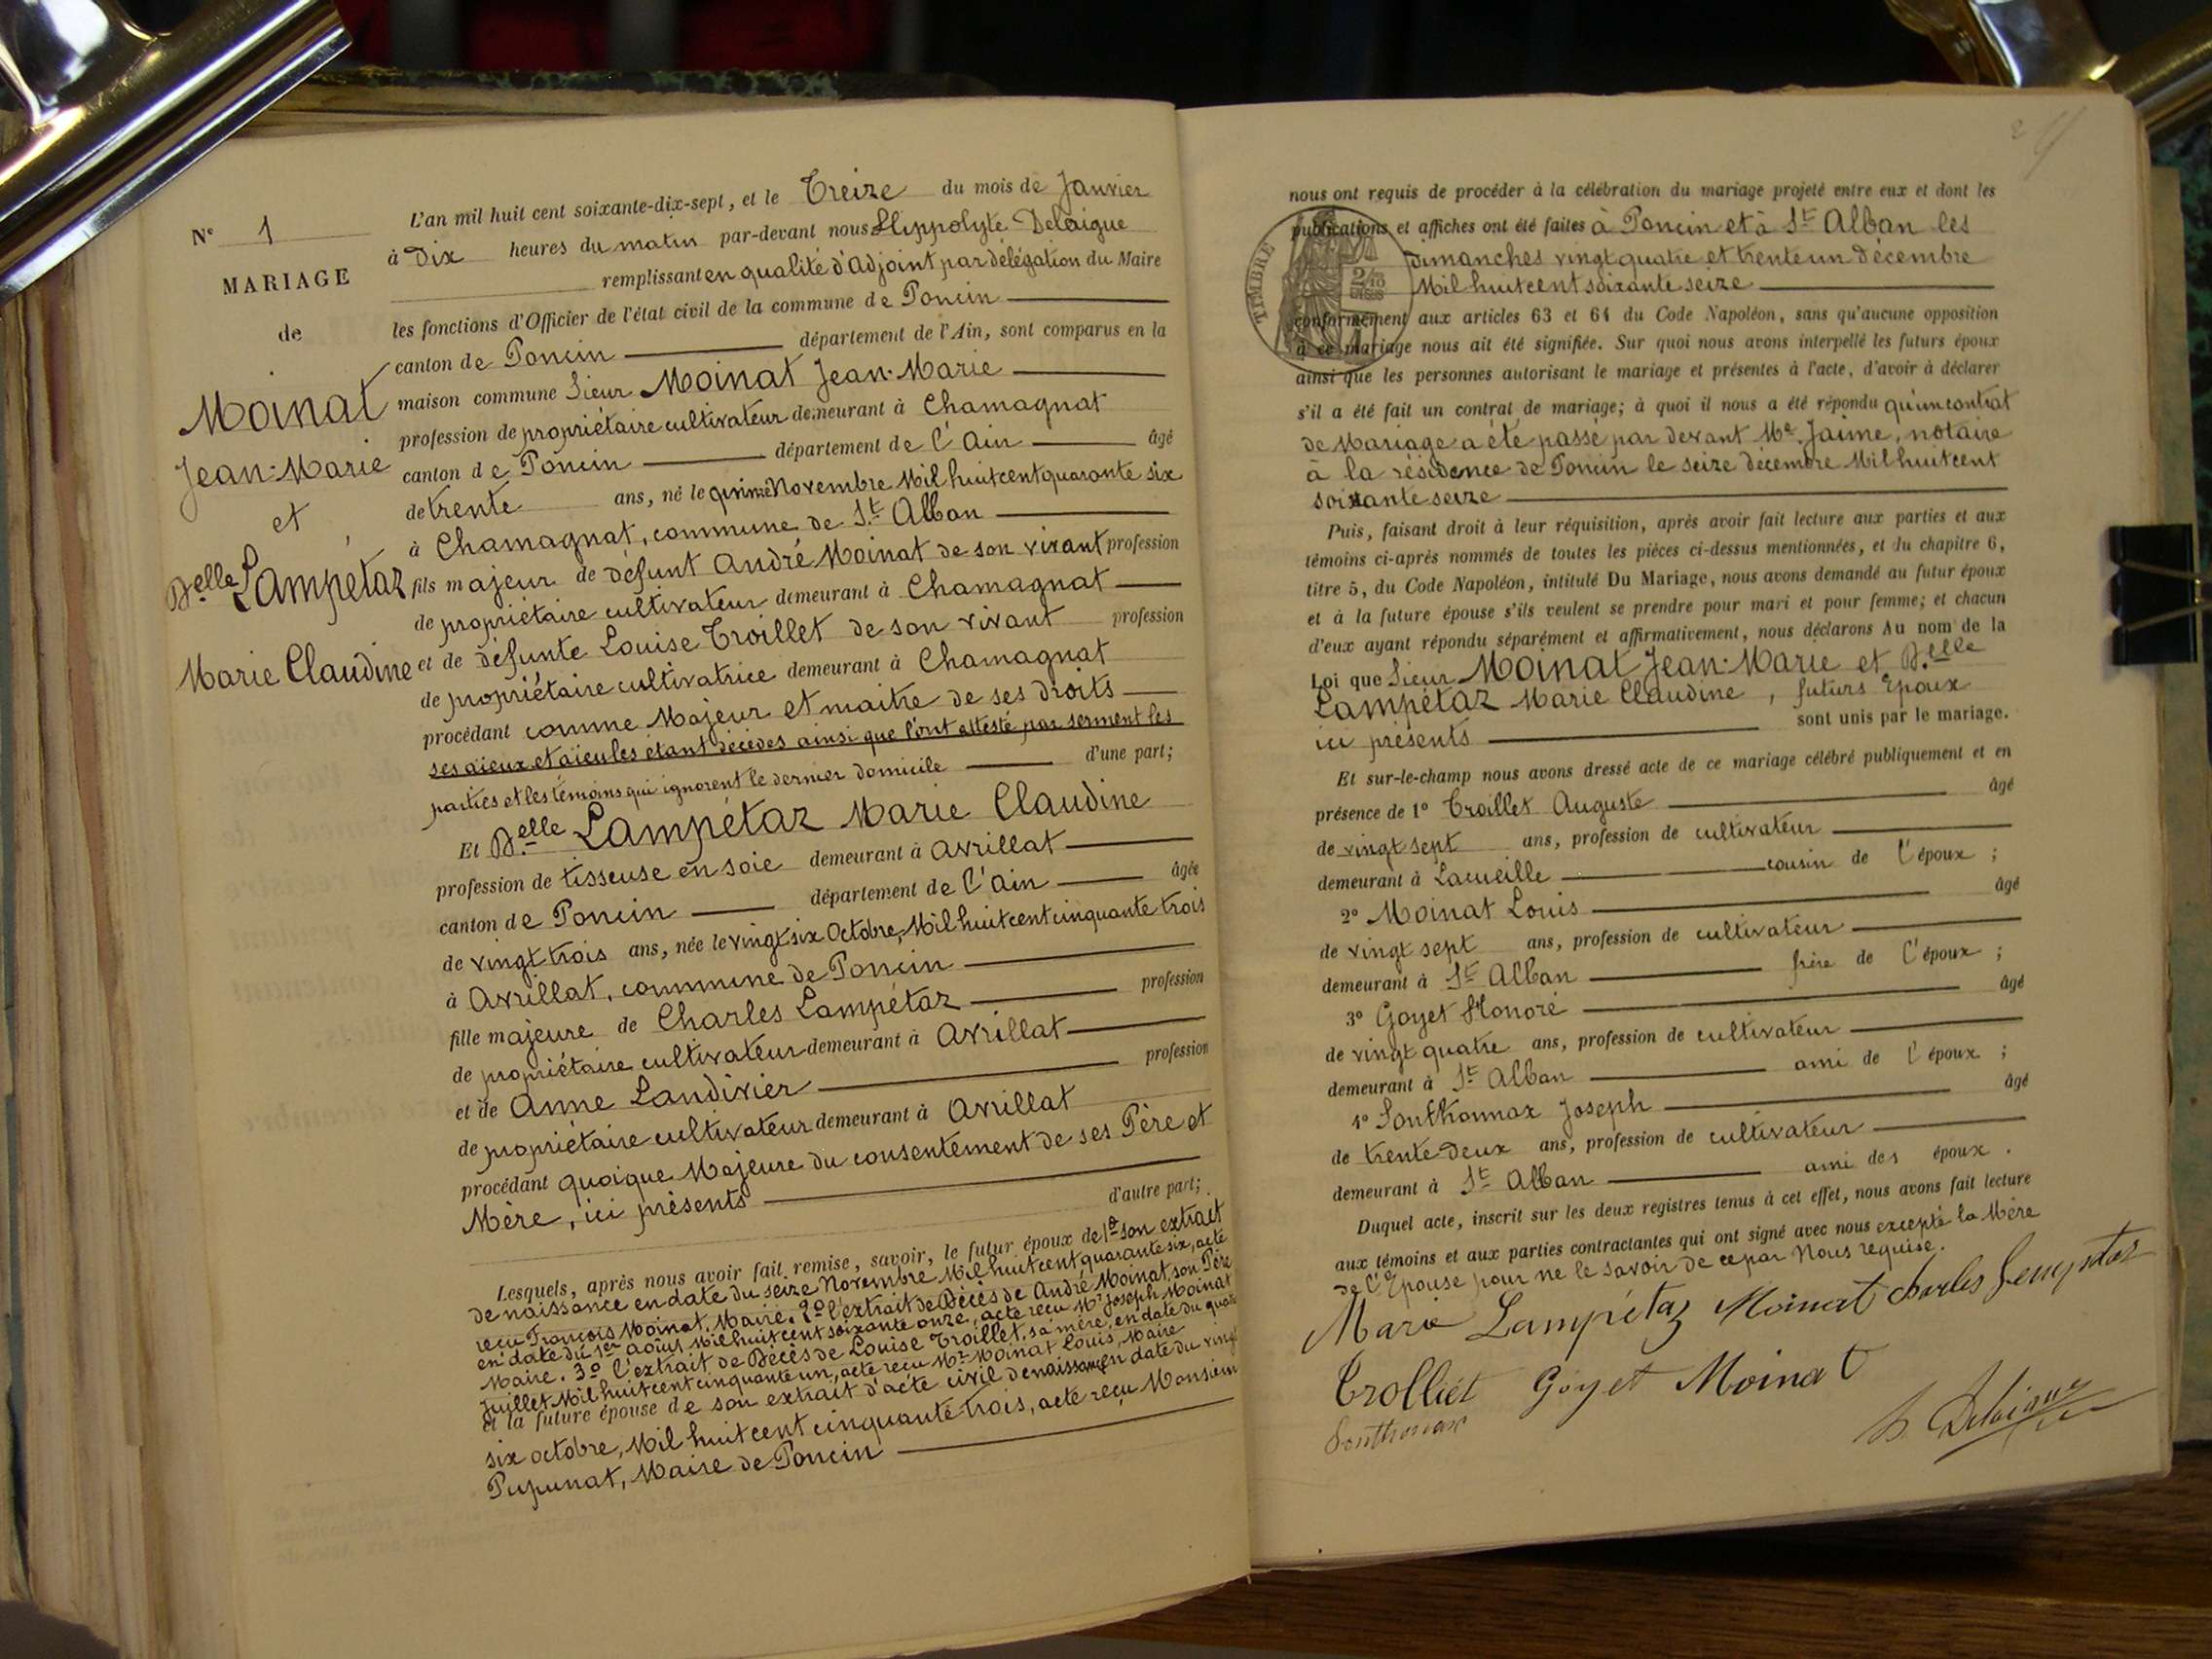 N° 1
MARIAGE
de
Moinat
Jean-Marie
et
Delle Lampétaz
Marie Claudine
L'an mil huit cent soixante-dix-sept, et le Treize du mois de Janvier
à Dix heures du matin par-devant nous Hippolyte Delaigue
remplissant en qualité d'adjoint par délégation du Maire
les fonctions d'Officier de l'état civil de la commune de Poncin
canton de Poncin département de l'Ain, sont comparus en la
maison commune Sieur Moinat Jean-Marie
profession de propriétaire cultivateur demeurant à Chamagnat
canton de Poncin département de l'Ain âgé
de trente ans, né le quinze Novembre Mil huit cent quarante six
à Chamagnat, commune de St Alban
fils majeur de défunt André Moinat de son vivant profession
de propriétaire cultivateur demeurant à Chamagnat
et de défunte Louise Troillet de son vivant profession
de propriétaire cultivatrice demeurant à Chamagnat
procédant comme Majeur et maitre de ses droits
ses aïeux et aïeules étant décédés ainsi que l'ont attesté par serment les
parties et les témoins qui ignorent le dernier domicile d'une part;
Et Delle Lampétaz Marie Claudine
profession de tisseuse en soie demeurant à Avrillat
canton de Poncin département de l'Ain âgée
de vingt trois ans, née le vingt six Octobre, Mil huit cent cinquante trois
à Avrillat, commune de Poncin
fille majeure de Charles Lampétaz profession
de propriétaire cultivateur demeurant à Avrillat
et de Anne Landivier profession
de propriétaire cultivateur demeurant à Avrillat
procédant quoique Majeure du consentement de ses Père et
Mère, ici présents
d'autre part;
Lesquels, après nous avoir fait remise, savoir, le futur époux de 1° son extrait
de naissance en date du seize Novembre Mil huit cent quarante six, acte
reçu François Moinat, Maire. 2° l'extrait de Décès de André Moinat, son Père
en date du 1er août Mil huit cent soixante onze, acte reçu Mr Joseph Moinat
Maire. 3° l'extrait de Décès de Louise Troillet, sa mère, en date du quatre
Juillet Mil huit cent cinquante un, acte reçu Mr Moinat Louis, Maire
et la future épouse de son extrait d'acte civil de naissance en date du vingt
six octobre, Mil huit cent cinquante trois, acte reçu Monsieur
Pupunat, Maire de Poncin
nous ont requis de procéder à la célébration du mariage projeté entre eux et dont les
publications et affiches ont été faites à Poncin et à St Alban les
Dimanches vingt quatre et trente un Décembre
Mil huit cent soixante seize
TIMBRE
conformément aux articles 63 et 64 du Code Napoléon, sans qu'aucune opposition
à ce mariage nous ait été signifiée. Sur quoi nous avons interpellé les futurs époux
ainsi que les personnes autorisant le mariage et présentes à l'acte, d'avoir à déclarer
s'il a été fait un contrat de mariage; à quoi il nous a été répondu qu'un contrat
de Mariage a été passé par devant Me. Jaime, notaire
à la résidence de Poncin le seize décembre Mil huit cent
soixante seize
Puis, faisant droit à leur réquisition, après avoir fait lecture aux parties et aux
témoins ci-après nommés de toutes les pièces ci-dessus mentionnées, et du chapitre 6,
titre 5, du Code Napoléon, intitulé Du Mariage, nous avons demandé au futur époux
et à la future épouse s'ils veulent se prendre pour mari et pour femme; et chacun
d'eux ayant répondu séparément et affirmativement, nous déclarons Au nom de la
Loi que Sieur Moinat Jean-Marie et Delle
Lampétaz Marie Claudine, futurs Epoux
ici présents sont unis par le mariage.
Et sur-le-champ nous avons dressé acte de ce mariage célébré publiquement et en
présence de 1° Troillet Auguste âgé
de vingt sept ans, profession de cultivateur
demeurant à Lacueille cousin de l'époux ;
2° Moinat Louis âgé
de vingt sept ans, profession de cultivateur
demeurant à St Alban frère de l'époux ;
3° Goyet Honoré âgé
de vingt quatre ans, profession de cultivateur
demeurant à St Alban ami de l'époux ;
4° Sonthonnax Joseph âgé
de trente deux ans, profession de cultivateur
demeurant à St Alban ami des époux.
Duquel acte, inscrit sur les deux registres tenus à cet effet, nous avons fait lecture
aux témoins et aux parties contractantes qui ont signé avec nous excepté la Mère
de l'Epouse pour ne le savoir de ce par Nous requise.
Marie Lampétaz Moinat Charles
Trolliet Goyet Moinat
Sonthonax
h. Delaigue